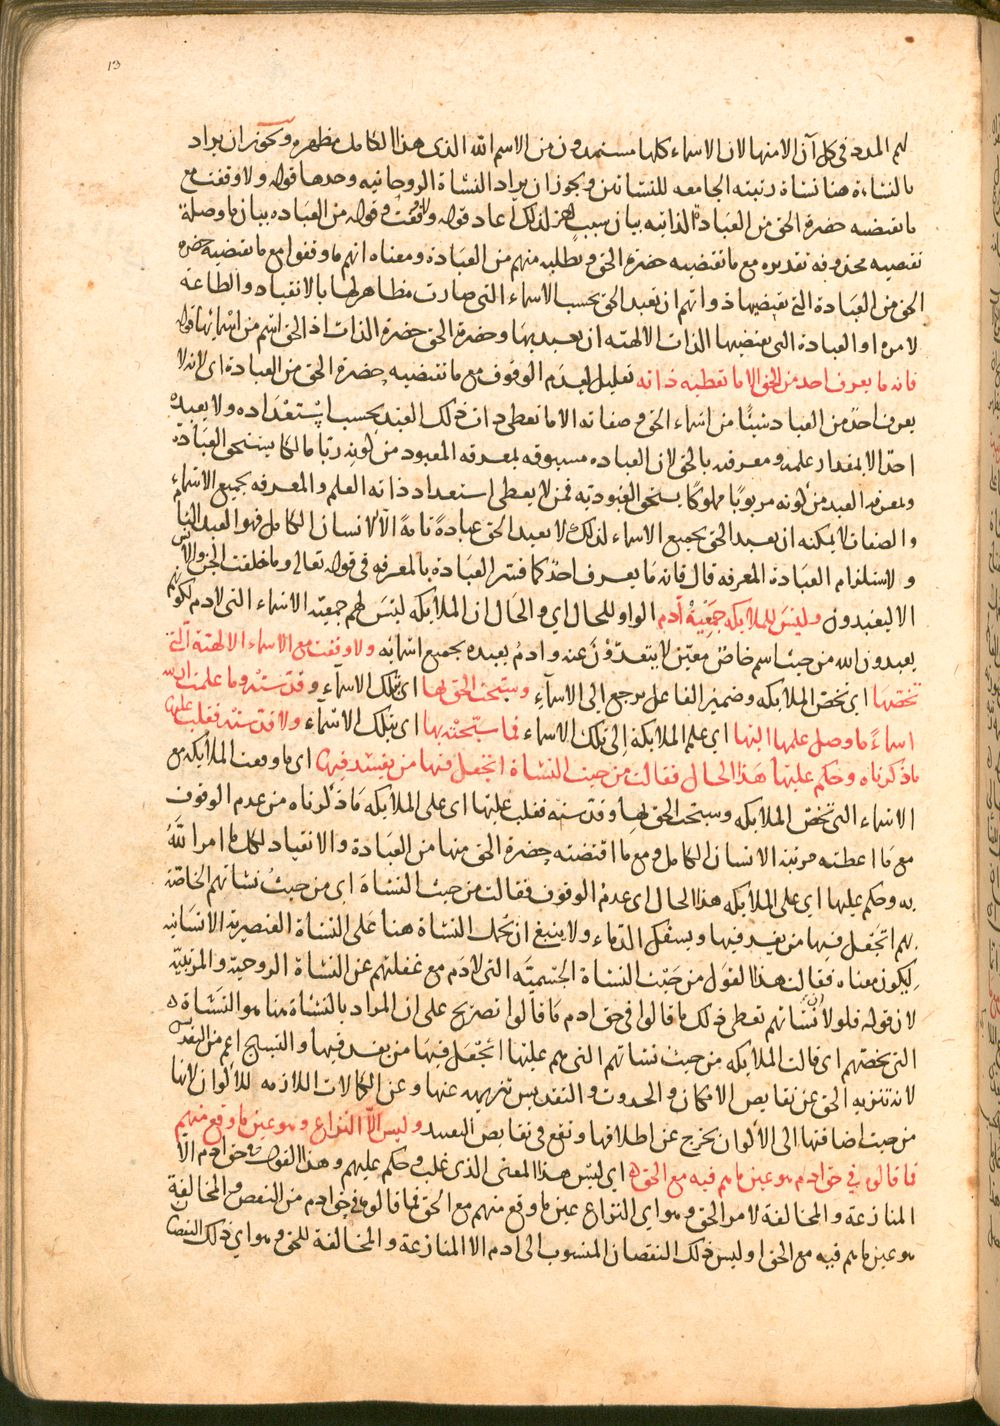 13
لهم المدد فى كل آن الا منها لان الاسماء كلها مستمدون من الاسم الله الذى هذا الكامل مظهره ويجوز ان يراد
بالنشاءة هنا نشاة رتبته الجامعه للنشاتين ويجوز ان يراد النشاة الروحانيه وحدها قوله ولا وقفت مع
ما تقتضيه حضرة الحق من العبادة الذاتيه بيان سبب اخر لذلك اعاد قوله ولا وقفت وقوله من العباده بيان ما وصلة
تقتضيه محذوفه تقديره مع ما تقتضيه حضرة الحق وتطلبه منهم من العبادة ومعناه انهم ما وقفوا مع ما تقتضيه حضرة
الحق من العبادة التى تقتضيها ذواتهم ان تعبد الحق بحسب الاسماء التى صارت مظاهر لها بالانقياد والطاعة
لامره او العبادة التى يقتضيها الذات الالهية ان يعبد بها وحضرة الحق حضرة الذات اذ الحق اسم من اسمائها قوله
فانه ما يعرف احد من الحق الا ما تعطيه ذاته تعليل لعدم الوقوف مع ما تقتضيه حضرة الحق من العبادة اى لانه لا
يعرف احد من العباد شيئا من اسماء الحق وصفاته الا ما تعطى ذات ذلك العبد بحسب استعداده ولا يعبده
احد الا بمقدار علمه ومعرفته بالحق لان العباده مسبوقه بمعرفة المعبود من كونه ربا مالكا يستحق العبادة
وبمعرفة العبد من كونه مربوبا مملوكا يستحق العبودية فمن لا يعطى استعداد ذاته العلم والمعرفه بجميع الاسماء
والصفات لا يمكنه ان يعبد الحق بجميع الاسماء لذلك لا يعبد الحق عبادة تامة الا الانسان الكامل فهو العبد التام
ولاستلزام العبادة المعرفه قال فانه ما يعرف احد كما فسر العبادة بالمعرفه فى قوله تعالى وما خلقت الجن والانس
الا ليعبدون وليس للملايكه جمعية آدم الواو للحال اى والحال ان الملايكه ليس لهم جمعية الاسماء التى لادم لكونهم
يعبدون الله من حيث اسم خاص معين لا يتعدّون عنه وادم يعبده بجميع اسمائه ولا وقفت مع الاسماء الالهية التى
تخصها اى تخص الملايكه وضمير الفاعل يرجع الى الاسماء وسبحت الحق بها اى بتلك الاسماء وقدسته وما علمت ان لله
اسماءً ما وصل علمها اليها اى علم الملايكة الى تلك الاسماء فما سبحته بها اى بتلك الاسماء ولا قدسته فغلب عليها
ما ذكرناه وحكم عليها هذا الحال فقالت من حيث النشاة اتجعل فيها من يفسد فيها اى ما وقفت الملايكه مع
الاسماء التى تخص الملايكه وسبحت الحق بها وقدسته فغلب عليها اى على الملايكه ما ذكرناه من عدم الوقوف
مع ما اعطته مرتبة الانسان الكامل ومع ما اقتضته حضرة الحق منها من العبادة والانقياد لكل ما امر الله
به وحكم عليها اى على الملايكه هذا الحال اى عدم الوقوف فقالت من حيث النشاة اى من حيث نشاتهم الخاصة
بهم اتجعل فيها من يفسد فيها ويسفك الدماء ولا ينبغ ان تحمل النشاة هنا على النشاة العنصرية الانسانيه
ليكون معناه فقالت هذا القول من حيث النشاة الجسمية التى لادم مع غفلتهم عن النشاة الروحية والمرتبية
لان قوله فلولا ان نشاتهم تعطى ذلك ما قالوا فى حق ادم ما قالوا تصريح على ان المراد بالنشاة هنا هو النشاة
التى تخصهم اى قالت الملايكه من حيث نشاتهم التى هم عليها اتجعل فيها من يفسد فيها والتسبيح اعم من التقديس
لانه تنزيه الحق عن نقايص الامكان والحدوث والتقديس تنزيهه عنها وعن الكمالات اللازمه للاكوان لانها
من حيث اضافتها الى الاكوان تخرج عن اطلاقها وتقع فى نقايص التقييد وليس الا النزاع وهو عين ما وقع منهم
فما قالوه فى حق ادم هو عين ما هم فيه مع الحق اى ليس هذا المعنى الذى غلب وحكم عليهم وهذا القول فى حق ادم الا
المنازعة والمخالفة لامر الحق وهو اى النزاع عين ما وقع منهم مع الحق فما قالوه فى حق ادم من النقص والمخالفة
هو عين ما هم فيه مع الحق او ليس ذلك النقصان المنسوب الى ادم الا المنازعة والمخالفة للحق وهو اى ذلك النقصان